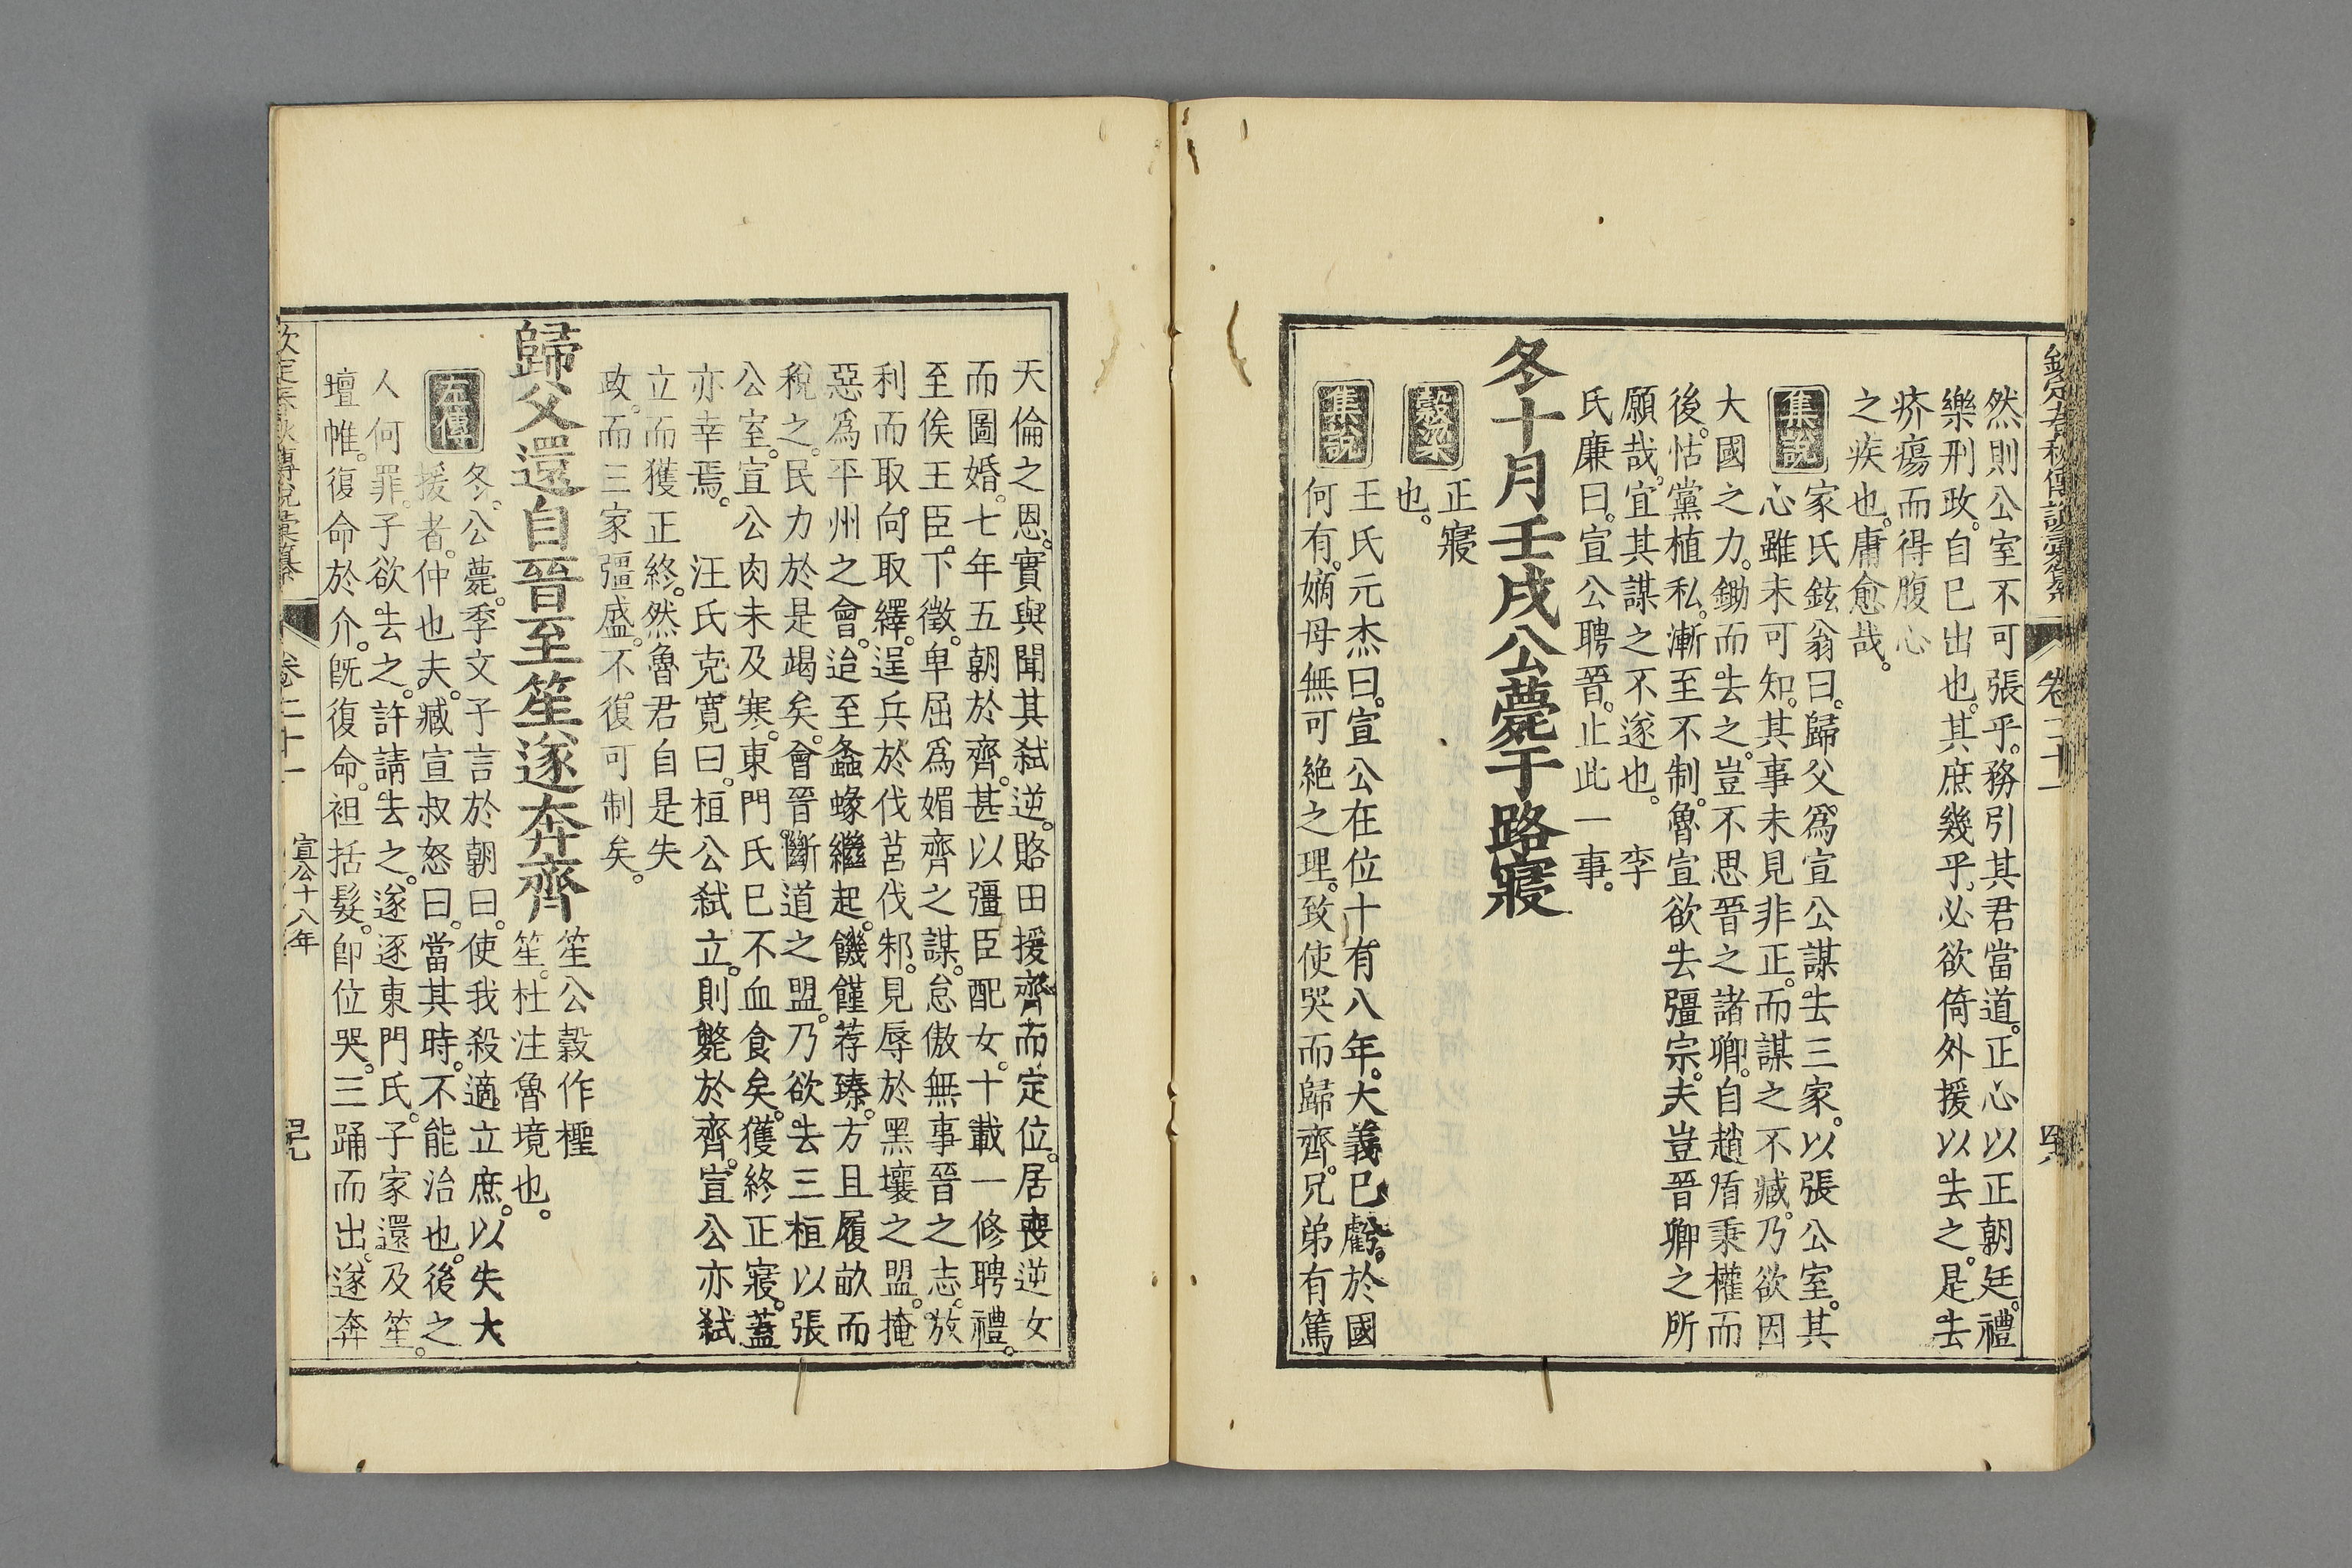 欽定春秋傳說彙纂 卷二十一
然則公室不可張乎。務引其君當道。正心以正朝廷。禮
樂刑政。自已出也。其庶幾乎。必欲倚外援以去之。是去
疥瘍而得腹心
之疾也。庸愈哉。
集說
家氏鉉翁曰。歸父爲宣公謀去三家。以張公室。其
心雖未可知。其事未見非正。而謀之不臧。乃欲因
大國之力。鋤而去之。豈不思晉之諸卿。自趙盾秉權而
後。怙黨植私。漸至不制。魯宣欲去彊宗。夫豈晉卿之所
願哉。宜其謀之不遂也。 李
氏廉曰。宣公聘晉。止此一事。
冬十月壬戌公薨于路寢
穀梁
正寢
也。
集說
王氏元杰曰。宣公在位十有八年。大義已虧。於國
何有。嫡母無可絶之理。致使哭而歸齊。兄弟有篤
天倫之恩。實與聞其弑逆。賂田援齊而定位。居喪逆女
而圖婚。七年五朝於齊。甚以彊臣配女。十載一修聘禮。
至俟王臣。下徵。卑屈爲媚齊之謀。怠傲無事晉之志。放
利而取向。取繹。逞兵於伐莒伐邾。見辱於黑壤之盟。掩
惡爲平州之會。迨至螽蝝繼起。饑饉荐臻。方且履畝而
稅之。民力於是竭矣。會晉斷道之盟。乃欲去三桓以張
公室。宣公肉未及寒。東門氏已不血食矣。獲終正寢。蓋
亦幸焉。 汪氏克寬曰。桓公弑立。則斃於齊。宣公亦弑
立而獲正終。然魯君自是失
政。而三家彊盛。不復可制矣。
歸父還自晉至笙遂奔齊
笙公穀作檉
笙。杜注魯境也。
左傳
冬。公薨。季文子言於朝曰。使我殺適立庶。以失大
援者。仲也夫。臧宣叔怒曰。當其時。不能治也。後之
人何罪。子欲去之。許請去之。遂逐東門氏。子家還及笙。
壇帷。復命於介。旣復命。袒括髮。卽位哭。三踊而出。遂奔
欽定春秋傳說彙纂 卷二十一 宣公十八年